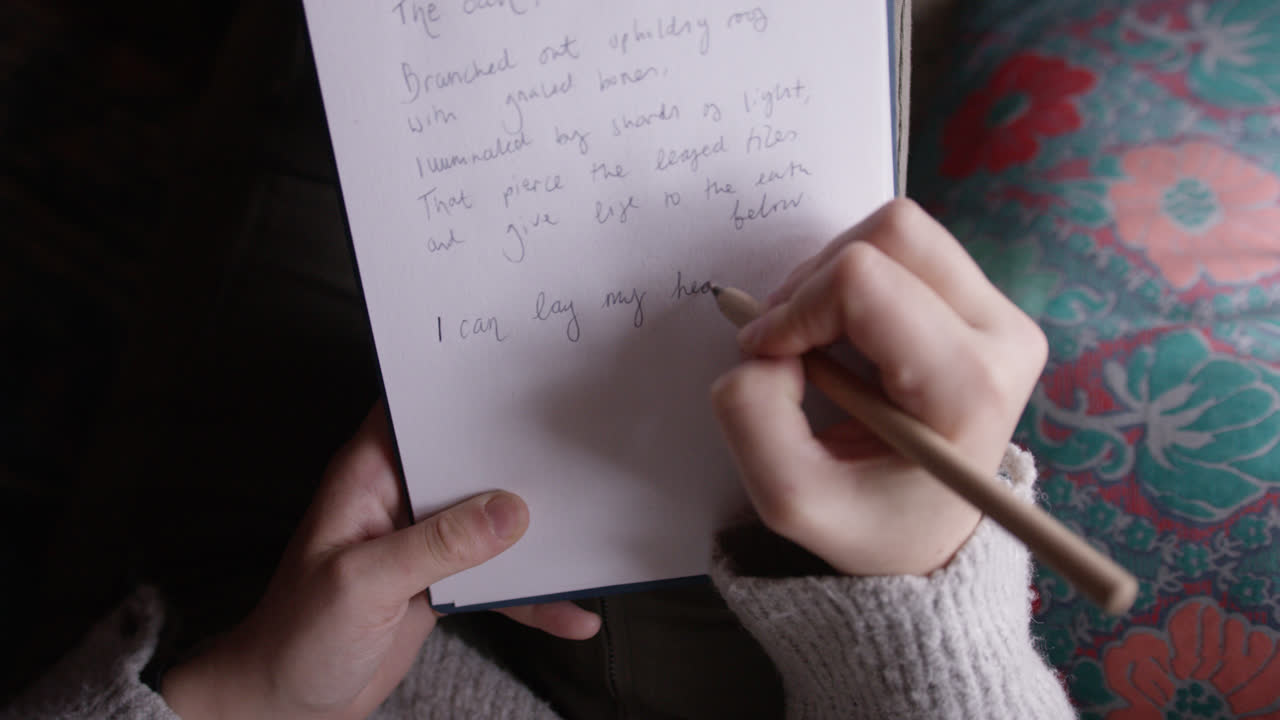 The
Branched out upholdry roof
with gnaled bones,
Iluminated by shards of light,
That pierce the leafed tiles
and give life to the earth
below
I can lay my hea